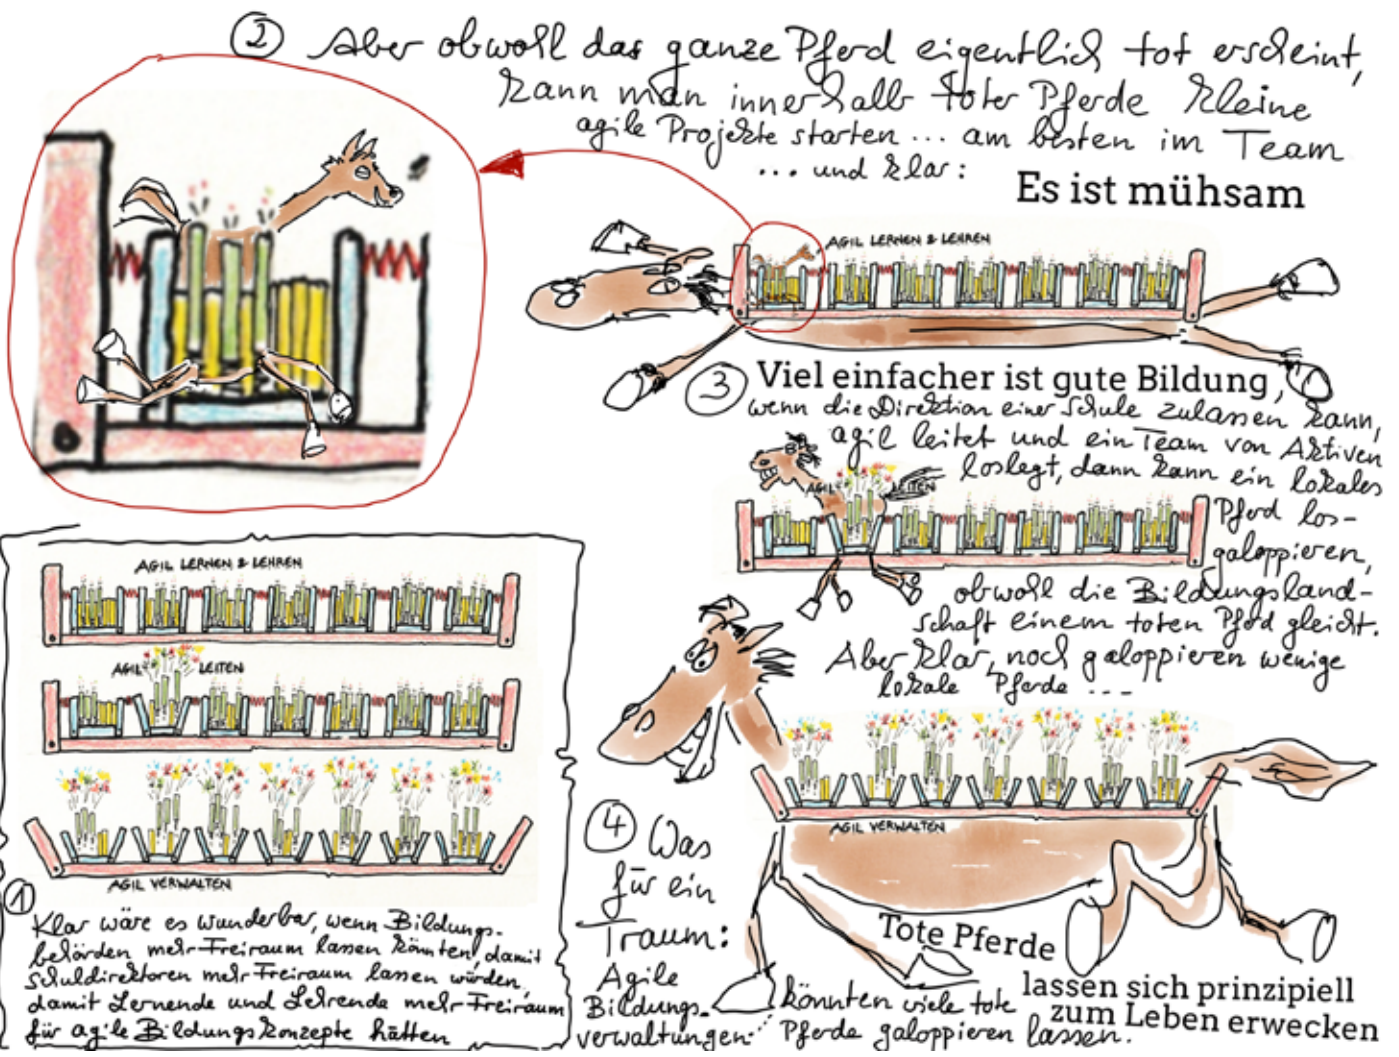 ② Aber obwohl das ganze Pferd eigentlich tot erscheint,
kann man innerhalb toter Pferde kleine
agile Projekte starten... am besten im Team
... und klar:
Es ist mühsam
AGIL LERNEN & LEHREN
③ Viel einfacher ist gute Bildung,
wenn die Direktion einer Schule zulassen kann,
agil leitet und ein Team von Aktiven
loslegt, dann kann ein lokales
AGIL LEITEN
Pferd los-
galoppieren,
obwohl die Bildungsland-
schaft einem toten Pferd gleicht.
Aber klar, noch galoppieren wenige
lokale Pferde ...
AGIL LERNEN & LEHREN
AGIL LEITEN
AGIL VERWALTEN
①
Klar wäre es wunderbar, wenn Bildungs-
behörden mehr Freiraum lassen könnten, damit
Schuldirektoren mehr Freiraum lassen würden,
damit Lernende und Lehrende mehr Freiraum
für agile Bildungskonzepte hätten
AGIL VERWALTEN
④ Was
für ein
Traum:
Agile
Bildungs-
verwaltungen...
könnten viele tote
Pferde galoppieren lassen.
Tote Pferde
lassen sich prinzipiell
zum Leben erwecken